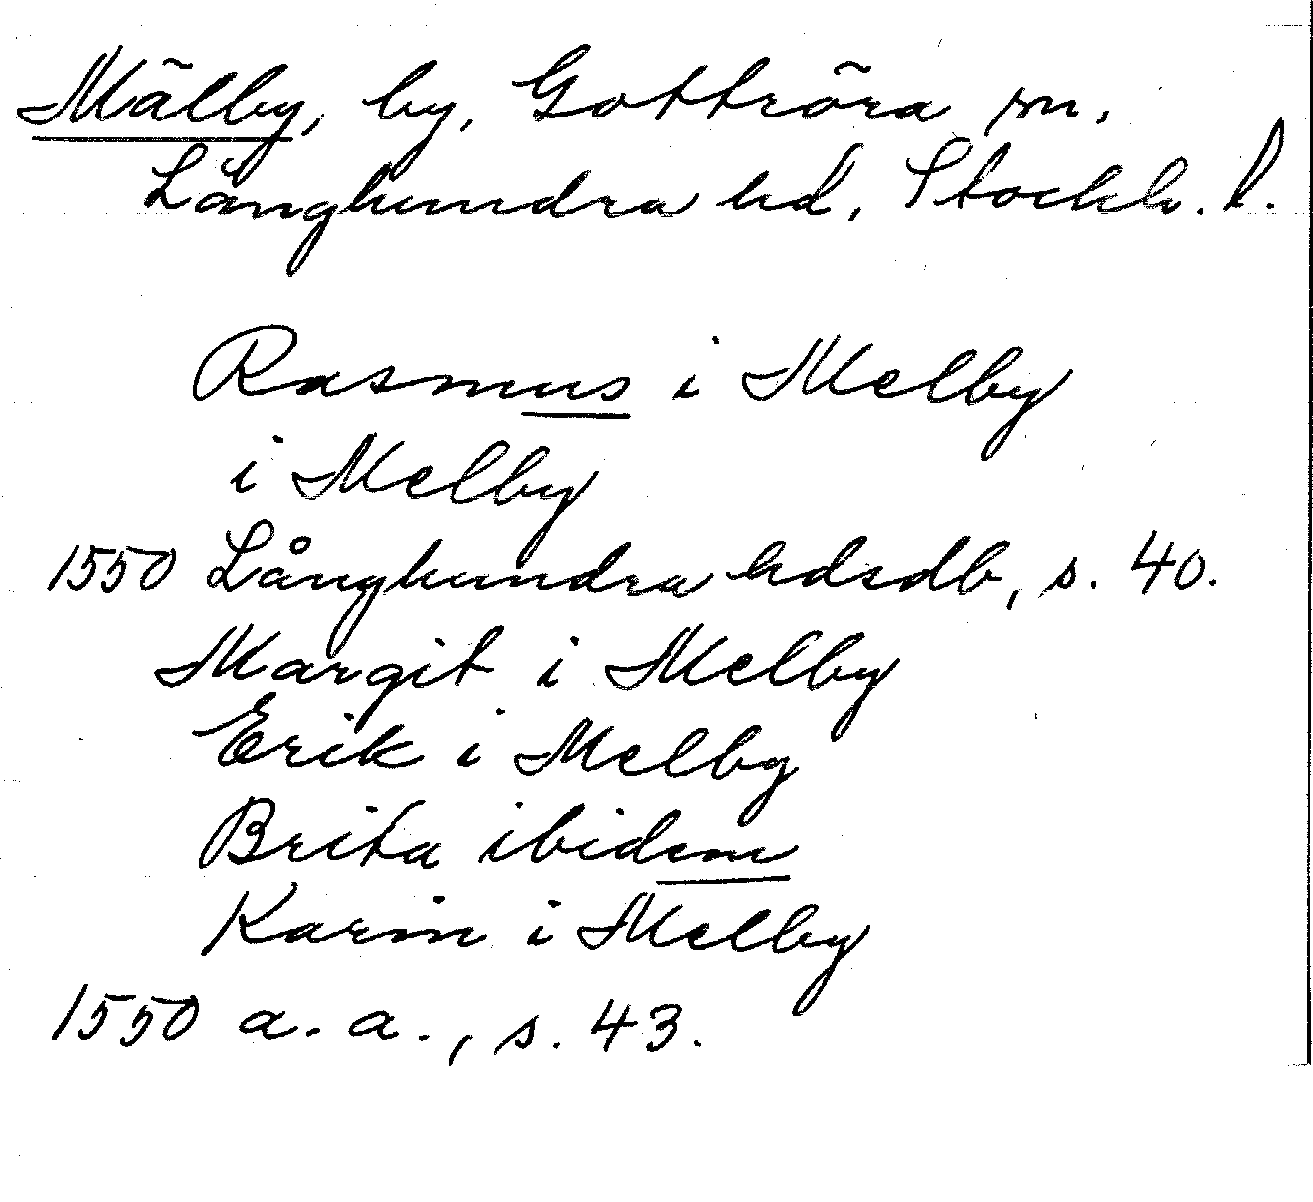 Mälby, by, Gottröra sn.
Långhundra hd, Stockh. l.
Rasmus i Melby
i Melby
1550 Långhundra hdsdb, s. 40.
Margit i Melby
Erik i Melby
Brita ibidem
Karin i Melby
1550 a. a., s. 43.